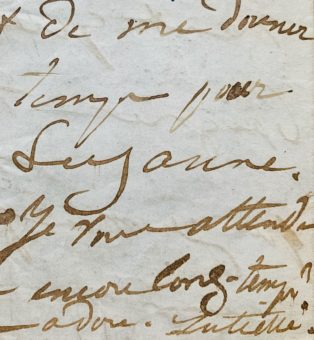 de me donner
temps pour
Suzanne.
Je vous attends
encore long-temps?
adore. Juliette